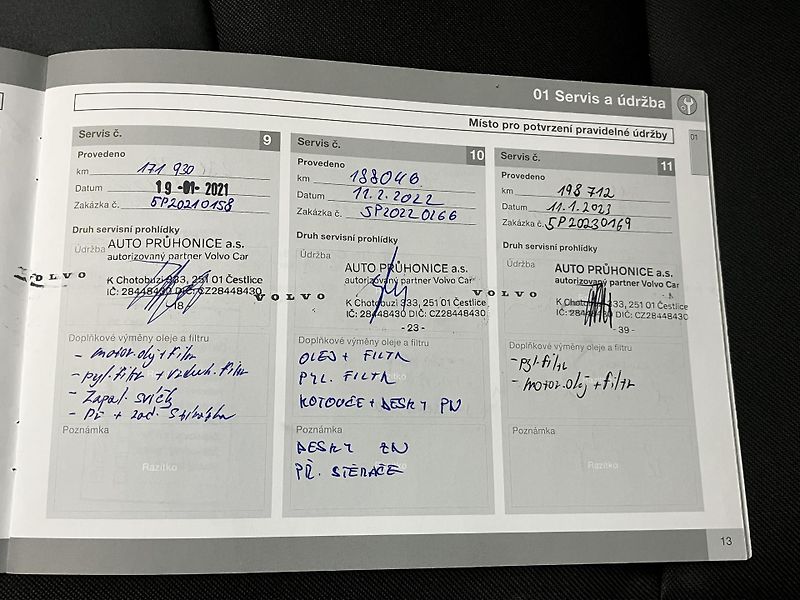 01 Servis a údržba
Místo pro potvrzení pravidelné údržby
01
Servis č. 9
Provedeno
km 171 930
Datum 19 -01- 2021
Zakázka č. 5P20210158
Druh servisní prohlídky
Údržba
AUTO PRŮHONICE a.s.
autorizovaný partner Volvo Car
K Chotobuzi 333, 251 01 Čestlice
IČ: 28448430 DIČ: CZ28448430
- 18 -
VOLVO
Doplňkové výměny oleje a filtru
- motor. olej + filtr
- pyl. filtr + vzduch. filtr
- Zapal. svíčky
- Př + zad.
Poznámka
Razítko
Servis č. 10
Provedeno
km 188046
Datum 11.2.2022
Zakázka č. 5P20220266
Druh servisní prohlídky
Údržba
AUTO PRŮHONICE a.s.
autorizovaný partner Volvo Car
K Chotobuzi 333, 251 01 Čestlice
IČ: 28448430 DIČ: CZ28448430
- 23 -
VOLVO
Doplňkové výměny oleje a filtru
OLEJ + FILTR
PYL. FILTR
KOTOUČE + DESKY PN
Poznámka
DESKY ZN
PŘ. STĚRAČE
Servis č. 11
Provedeno
km 198 712
Datum 11.1.2023
Zakázka č. 5P20230169
Druh servisní prohlídky
Údržba
AUTO PRŮHONICE a.s.
autorizovaný partner Volvo Car
K Chotobuzi 333, 251 01 Čestlice
IČ: 28448430 DIČ: CZ28448430
- 39 -
VOLVO
Doplňkové výměny oleje a filtru
- pyl. filtr
- motor. olej + filtr
Poznámka
Razítko
13